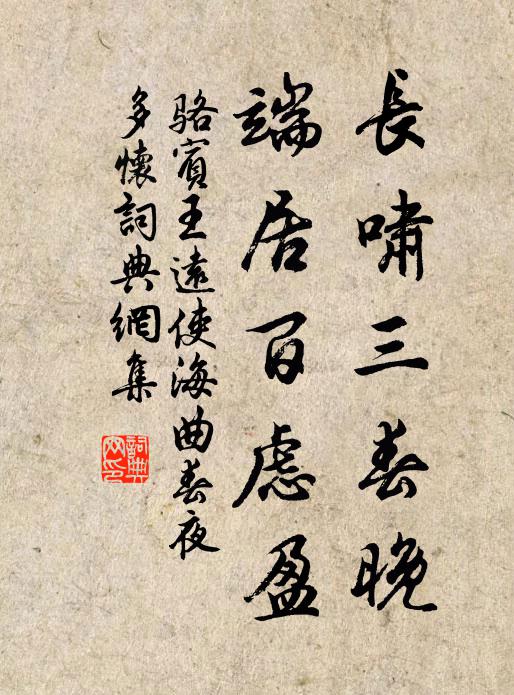 長嘯三春晚
端居百慮盈
駱賓王遠使海曲春夜
多懷詞典網集
詞典
网印